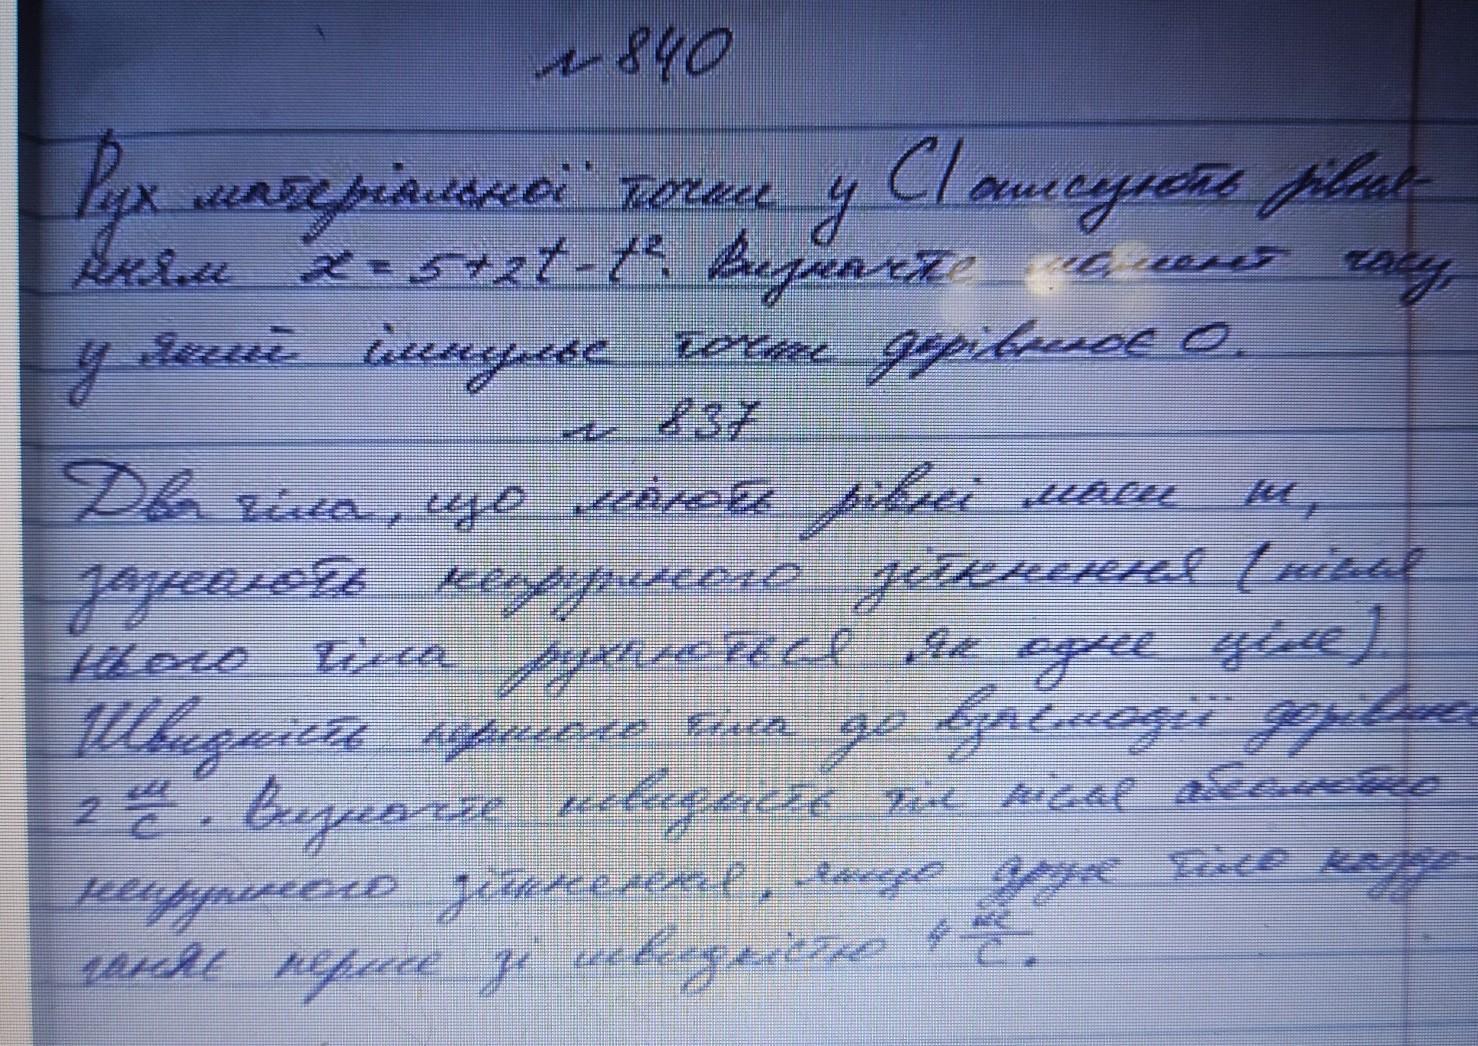 № 840
Рух матеріальної точки у СІ описують рівнян-
ням x = 5+2t - t². Визначте момент часу,
у який імпульс точки дорівнює 0.
№ 837
Два тіла, що мають рівні маси m,
зазнають непружного зіткнення (після
нього тіла рухаються як одне ціле).
Швидкість першого тіла до взаємодії дорівнює
2 м/с. Визначте швидкість тіл після абсолютно
непружного зіткнення, якщо друге тіло наздо-
ганяє перше зі швидкістю 4 м/с.